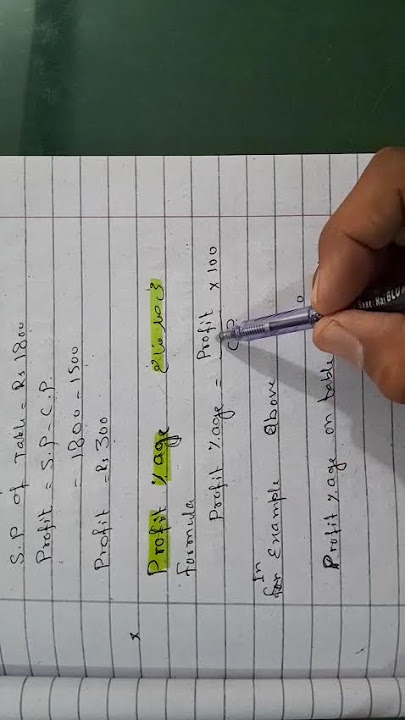 S.P of Table = Rs 1800
Profit = S.P - C.P
= 1800 - 1500
Profit = Rs 300
Profit %age
Formula
Profit %age = Profit / C.P × 100
In
for Example above
Profit %age on table